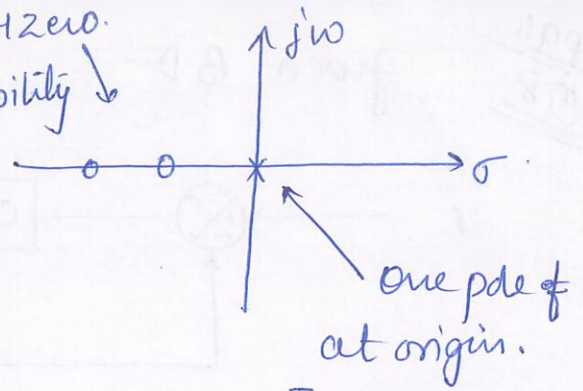 zero.
bility
jω
σ
One pole of
at origin.